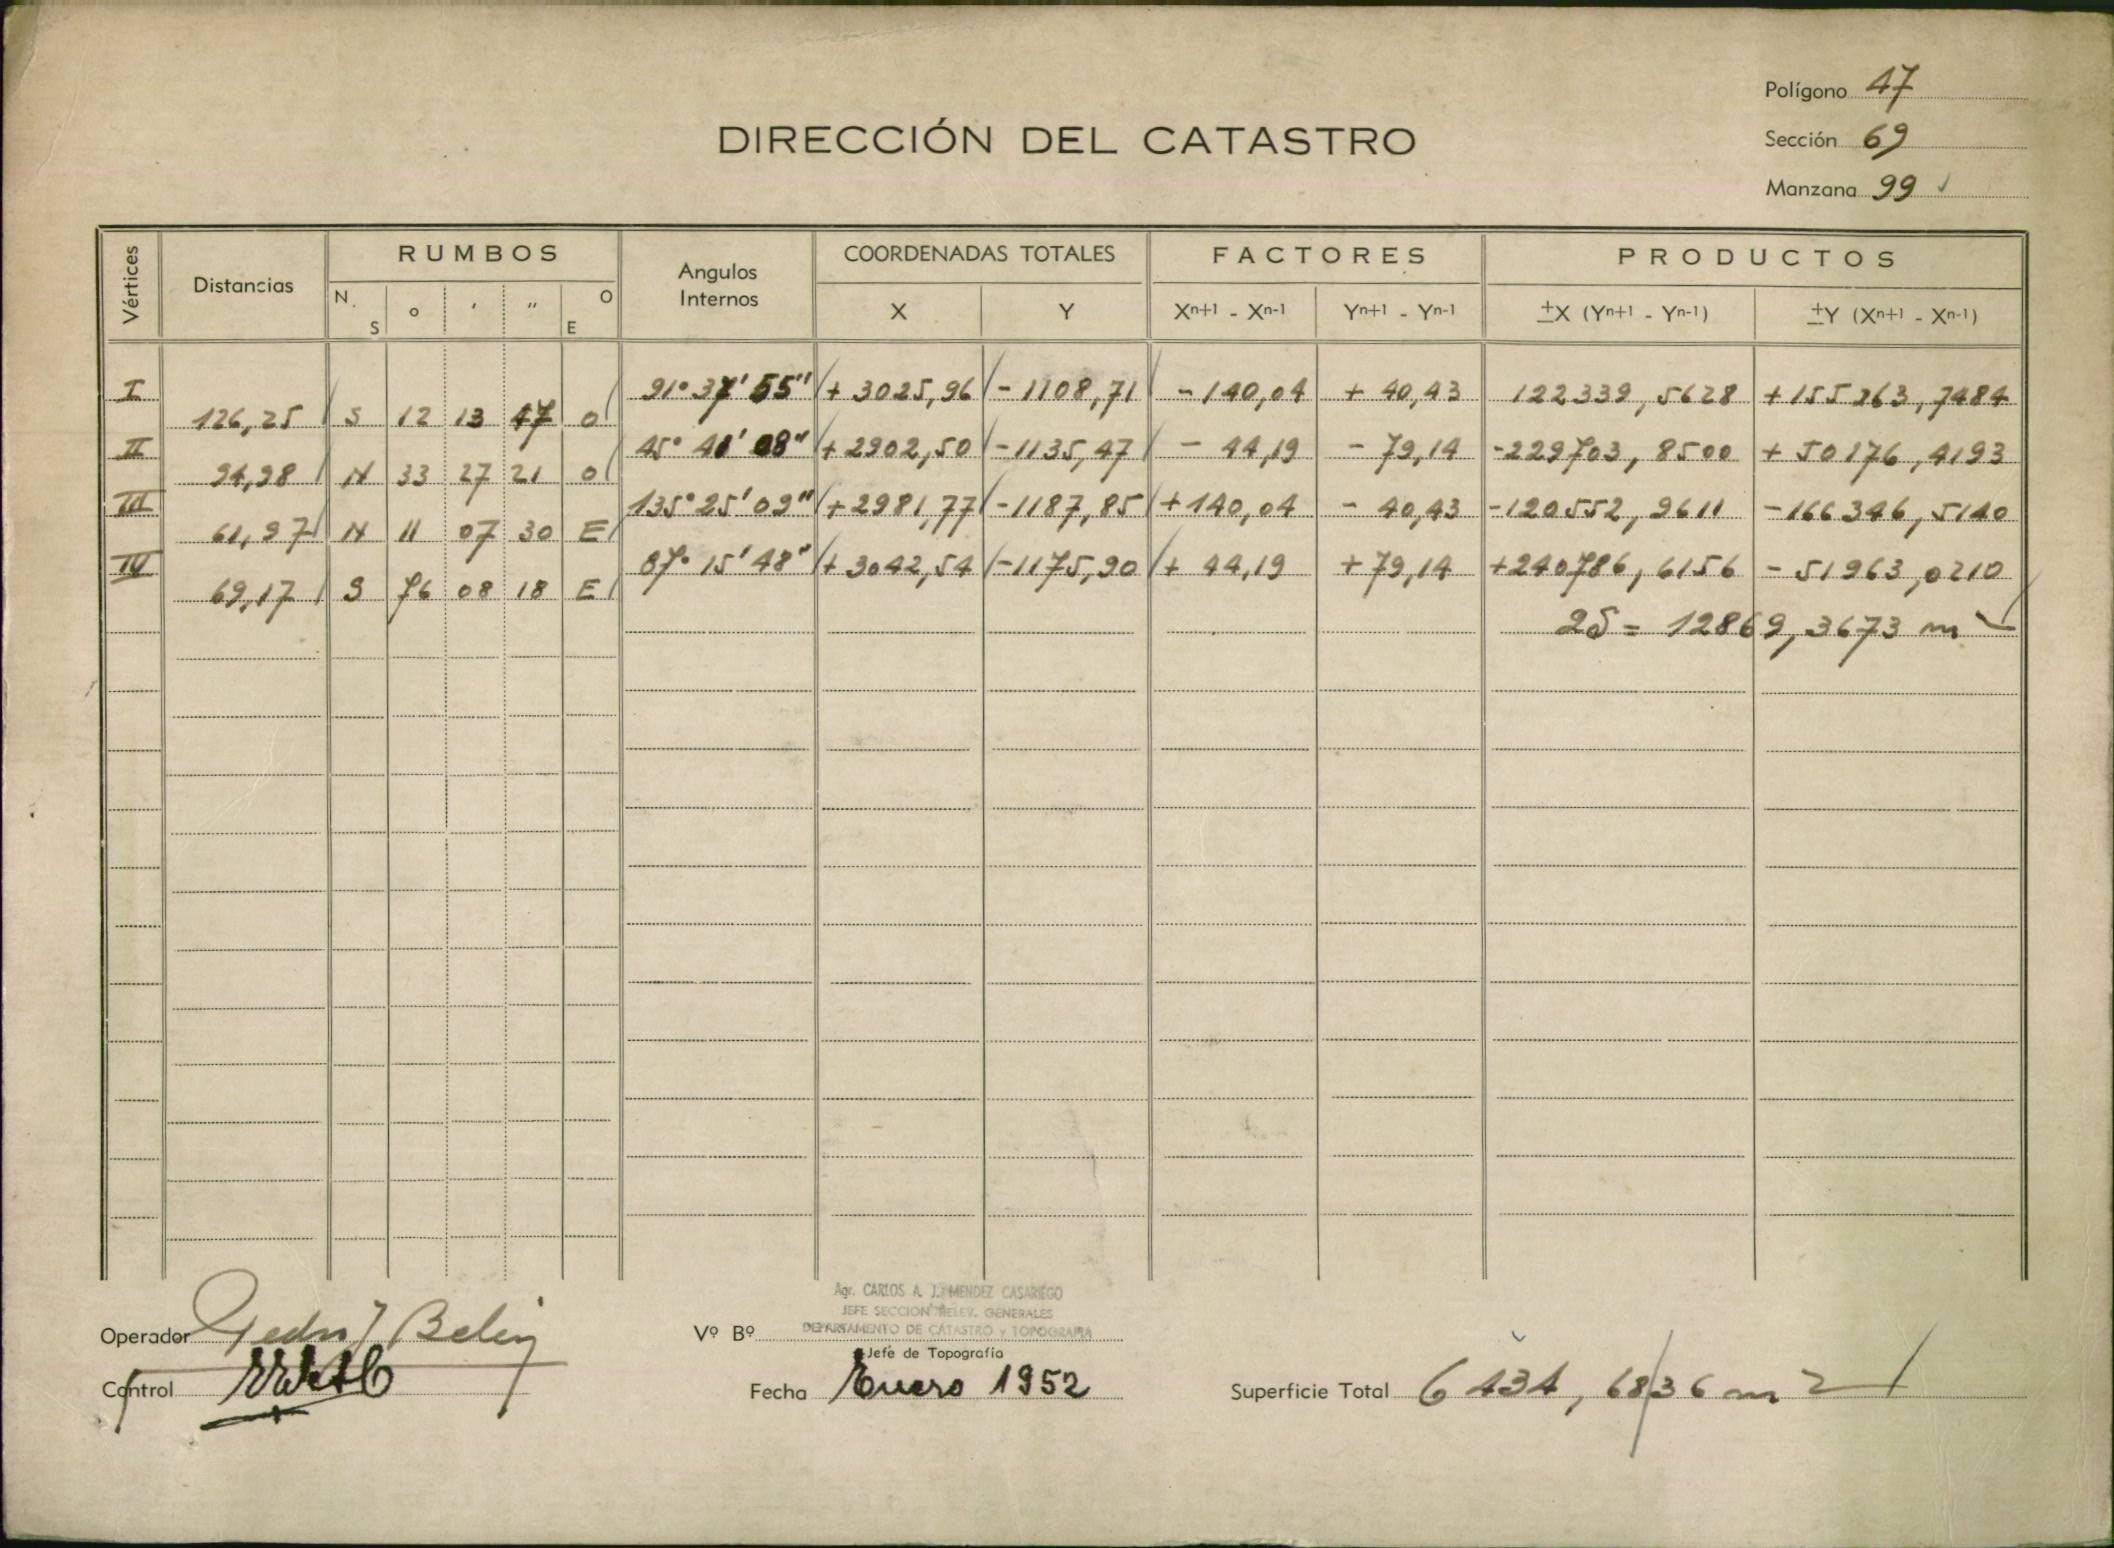 Polígono 47
DIRECCIÓN DEL CATASTRO
Sección 69
Manzana 99
Vértices
Distancias
RUMBOS
N. S ° ' " O E
Angulos Internos
COORDENADAS TOTALES
X Y
FACTORES
Xn+1 - Xn-1 Yn+1 - Yn-1
PRODUCTOS
±X (Yn+1 - Yn-1) ±Y (Xn+1 - Xn-1)
I 91° 37' 55" + 3025,96 - 1108,71 - 140,04 + 40,43 122339,5628 + 155263,7484
126,25 S 12 13 47 O
II 45° 41' 08" + 2902,50 - 1135,47 - 44,19 - 79,14 - 229703,8500 + 50176,4193
94,98 N 33 27 21 O
III 135° 25' 09" + 2981,77 - 1187,85 + 140,04 - 40,43 - 120552,9611 - 166346,5140
61,97 N 11 07 30 E
IV 87° 15' 48" + 3042,54 - 1175,90 + 44,19 + 79,14 + 240786,6156 - 51963,0210
69,17 S 76 08 18 E
2S = 12869,3673 m
Operador Pedro J Belin
Vº Bº
Agr. CARLOS A. J. MENDEZ CASARIEGO
JEFE SECCION RELEV. GENERALES
DEPARTAMENTO DE CATASTRO y TOPOGRAFIA
Jefe de Topografía
Control
Fecha Enero 1952
Superficie Total 6434,6836 m2